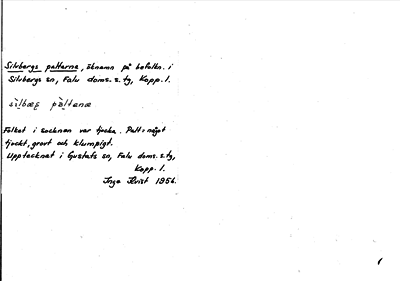 Silvbergs paltarna, öknamn på befolkn. i
Silvbergs sn, Falu doms. s. tg, Kopp. l.
Folket i socknen var tjocka. Palt = något
tjockt, grovt och klumpigt.
Upptecknat i Gustafs sn, Falu doms. s. tg,
Kopp. l.
Inga 1956.